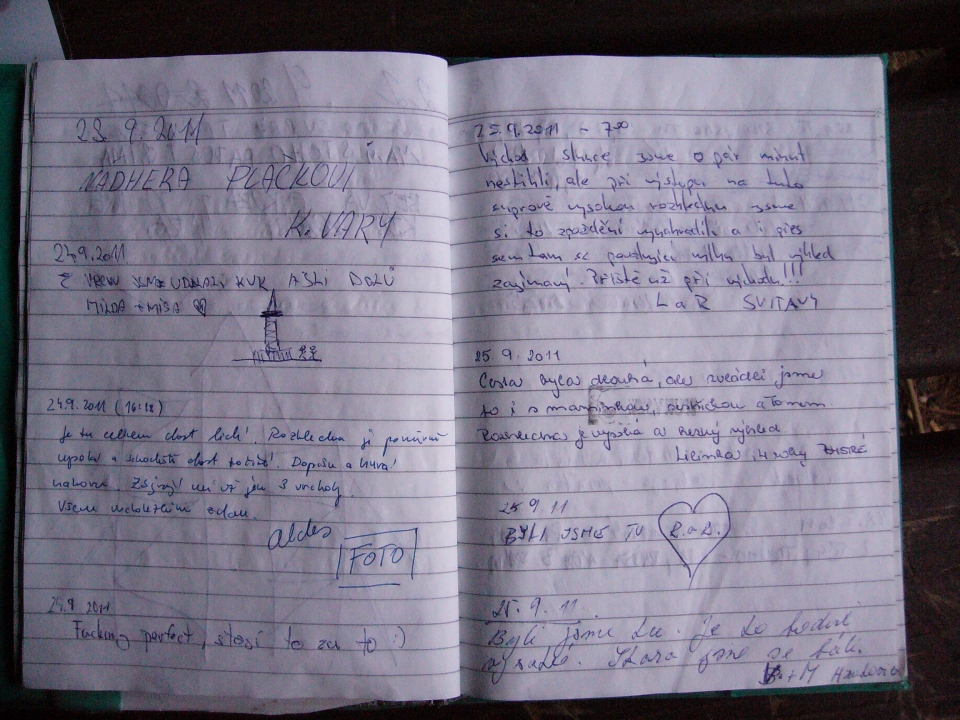 23.9.2011
NÁDHERA PLAČKOVI
K.VARY
24.9.2011
DOLŮ
MILDA + MÍŠA
24.9.2011 (16:12)
Je tu celkem dost lidí. Rozhledna je
vysoká a dost
nahoru. už jen 3 vrcholy.
Všem zdar.
aldes
FOTO
24.9 2011
Fucking perfect, stojí to za to :)
25.9.2011 - 7:00
Východ slunce jsme o pár minut
nestihli, ale při výstupu na tuto
suprově vysokou rozhlednu jsme
si to zpoždění vynahradili a i přes
sem tam se povalující mlhu byl výhled
zajímavý. Příště už při východu!!!
L a R SVITAVY
25.9.2011
Cesta byla dlouhá, ale zvládli jsme
to i s maminkou, a Tomem
Rozhledna je vysoká a hezký výhled
Lilinka, 4 roky
25 9.11
BYLI JSME TU
25.9.11.
Byli jsme tu. Je to hodně
vysoké. Skoro jsme se báli.
+M